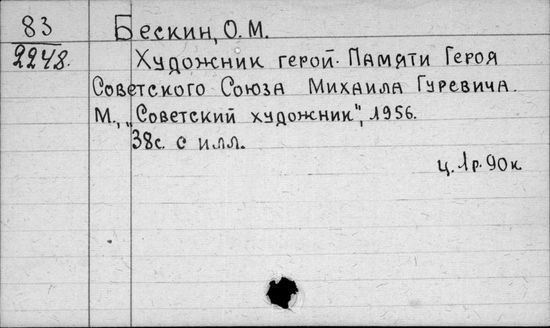 83
2248.
Бескин, О.М.
Художник герой. Памяти Героя
Советского Союза Михаила Гуревича.
М., „Советский художник", 1956.
38с. с илл.
ц. 1р. 90к